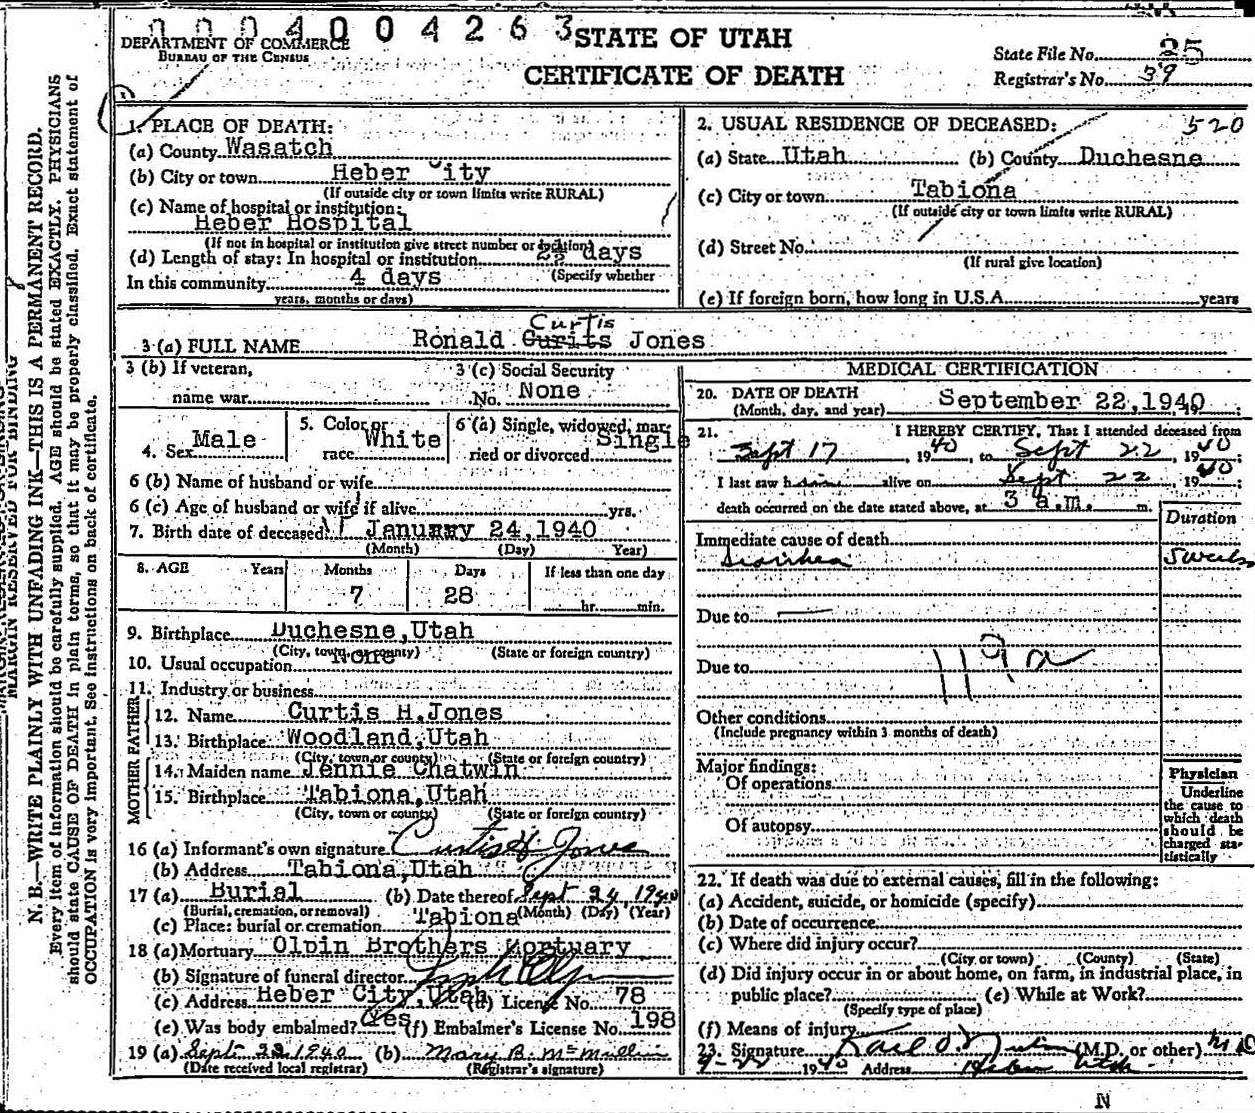 0004004263
STATE OF UTAH
CERTIFICATE OF DEATH
DEPARTMENT OF COMMERCE
BUREAU OF THE CENSUS
State File No. 25
Registrar's No. 39
MARGIN RESERVED FOR BINDING
N. B.—WRITE PLAINLY WITH UNFADING INK—THIS IS A PERMANENT RECORD.
Every item of information should be carefully supplied. AGE should be stated EXACTLY. PHYSICIANS
should state CAUSE OF DEATH in plain terms, so that it may be properly classified. Exact statement of
OCCUPATION is very important. See instructions on back of certificate.
1. PLACE OF DEATH:
(a) County Wasatch
(b) City or town Heber City
(If outside city or town limits write RURAL)
(c) Name of hospital or institution:
Heber Hospital
(If not in hospital or institution give street number or location)
(d) Length of stay: In hospital or institution days
(Specify whether
In this community 4 days
years, months or days)
2. USUAL RESIDENCE OF DECEASED: 520
(a) State Utah (b) County Duchesne
(c) City or town Tabiona
(If outside city or town limits write RURAL)
(d) Street No.
(If rural give location)
(e) If foreign born, how long in U.S.A. years
Curtis
3 (a) FULL NAME Ronald Curits Jones
3 (b) If veteran, name war
3 (c) Social Security No. None
4. Sex Male
5. Color or race White
6 (a) Single, widowed, married or divorced Single
6 (b) Name of husband or wife
6 (c) Age of husband or wife if alive yrs.
7. Birth date of deceased January 24,1940
(Month) (Day) Year)
8. AGE Years Months Days If less than one day
7 28 hr. min.
9. Birthplace Duchesne,Utah
(City, town, or county) (State or foreign country)
10. Usual occupation None
11. Industry or business
FATHER
12. Name Curtis H.Jones
13. Birthplace Woodland,Utah
(City, town or county) (State or foreign country)
MOTHER
14. Maiden name Jennie Chatwin
15. Birthplace Tabiona,Utah
(City, town or county) (State or foreign country)
16 (a) Informant's own signature Curtis H Jones
(b) Address Tabiona,Utah
17 (a) Burial (b) Date thereof Sept 24, 1940
(Burial, cremation, or removal) (Month) (Day) (Year)
(c) Place: burial or cremation Tabiona
18 (a) Mortuary Olpin Brothers Mortuary
(b) Signature of funeral director
(c) Address Heber City,Utah (d) License No. 78
(e) Was body embalmed? Yes (f) Embalmer's License No. 198
19 (a) Sept. 22.1940 (b) Mary B. McMullin
(Date received local registrar) (Registrar's signature)
MEDICAL CERTIFICATION
20. DATE OF DEATH September 22,1940 19 ;
(Month, day, and year)
21. I HEREBY CERTIFY, That I attended deceased from
Sept 17, 1940, to Sept 22, 1940;
I last saw him alive on Sept 22, 1940;
death occurred on the date stated above, at 3 a.m. m.
Duration
Immediate cause of death
Diarrhea
Due to —
Due to
119a
Other conditions
(Include pregnancy within 3 months of death)
Major findings:
Of operations
Of autopsy
Physician
Underline
the cause to
which death
should be
charged sta-
tistically
22. If death was due to external causes, fill in the following:
(a) Accident, suicide, or homicide (specify)
(b) Date of occurrence
(c) Where did injury occur?
(City or town) (County) (State)
(d) Did injury occur in or about home, on farm, in industrial place, in
public place? (e) While at Work?
(Specify type of place)
(f) Means of injury
23. Signature Karl O. (M.D. or other) M D
9-22 1940 Address Heber Utah
N